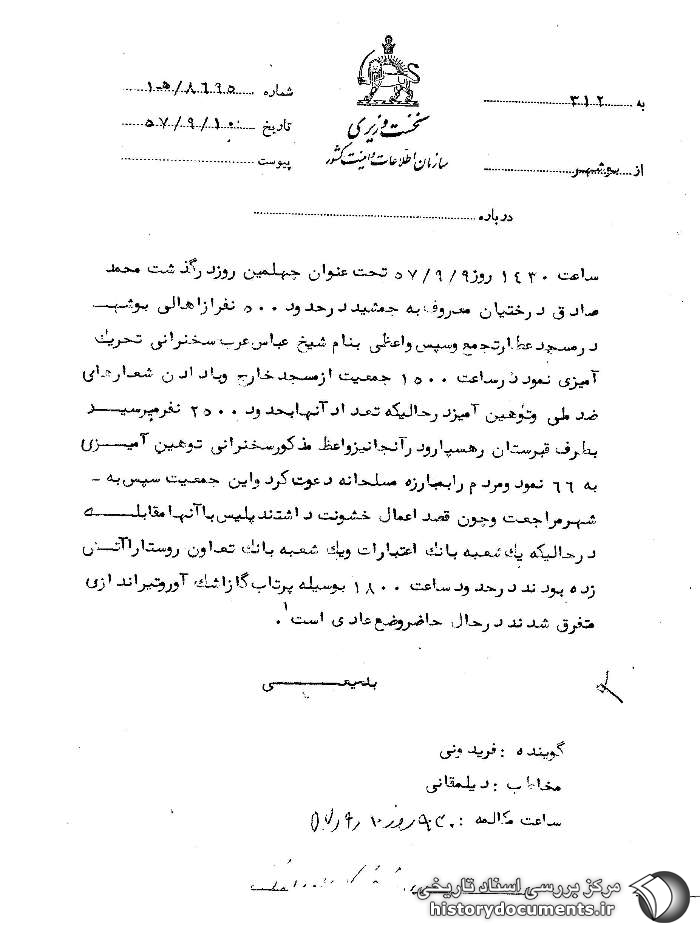 به ۳۱۲
شماره ۱۰۵/۸٦۹۵
نخست وزیری
تاریخ ۵۷/۹/۱۰
سازمان اطلاعات و امنیت کشور
از بوشهر
پیوست
درباره
ساعت ۱٤۳۰ روز ۵۷/۹/۹ تحت عنوان چهلمین روز درگذشت محمد
صادق درختیان معروف به جمشید در حدود ۵۰۰ نفر از اهالی بوشهر
در مسجد عطار تجمع و سپس واعظی بنام شیخ عباس عرب سخنرانی تحریک
آمیزی نمود در ساعت ۱۵۰۰ جمعیت از مسجد خارج و با دادن شعارهای
ضد ملی و توهین آمیز در حالیکه تعداد آنها بحدود ۲۵۰۰ نفر میرسید
بطرف قبرستان رهسپار و در آنجا نیز واعظ مذکور سخنرانی توهین آمیزی
به ٦٦ نمود و مردم را بمبارزه مسلحانه دعوت کرد و این جمعیت سپس به -
شهر مراجعت و چون قصد اعمال خشونت داشتند پلیس با آنها مقابله
در حالیکه یک شعبه بانک اعتبارات و یک شعبه بانک تعاون روستا را آتش
زده بودند در حدود ساعت ۱۸۰۰ بوسیله پرتاب گاز اشک آور و تیراندازی
متفرق شدند در حال حاضر وضع عادی است ۱.
بدیعی
گوینده : فریدونی
مخاطب : دیلمقانی
ساعت مکالمه : ۹۳۰ روز ۵۷٫۹٫۱۰
مرکز بررسی اسناد تاریخی
historydocuments.ir